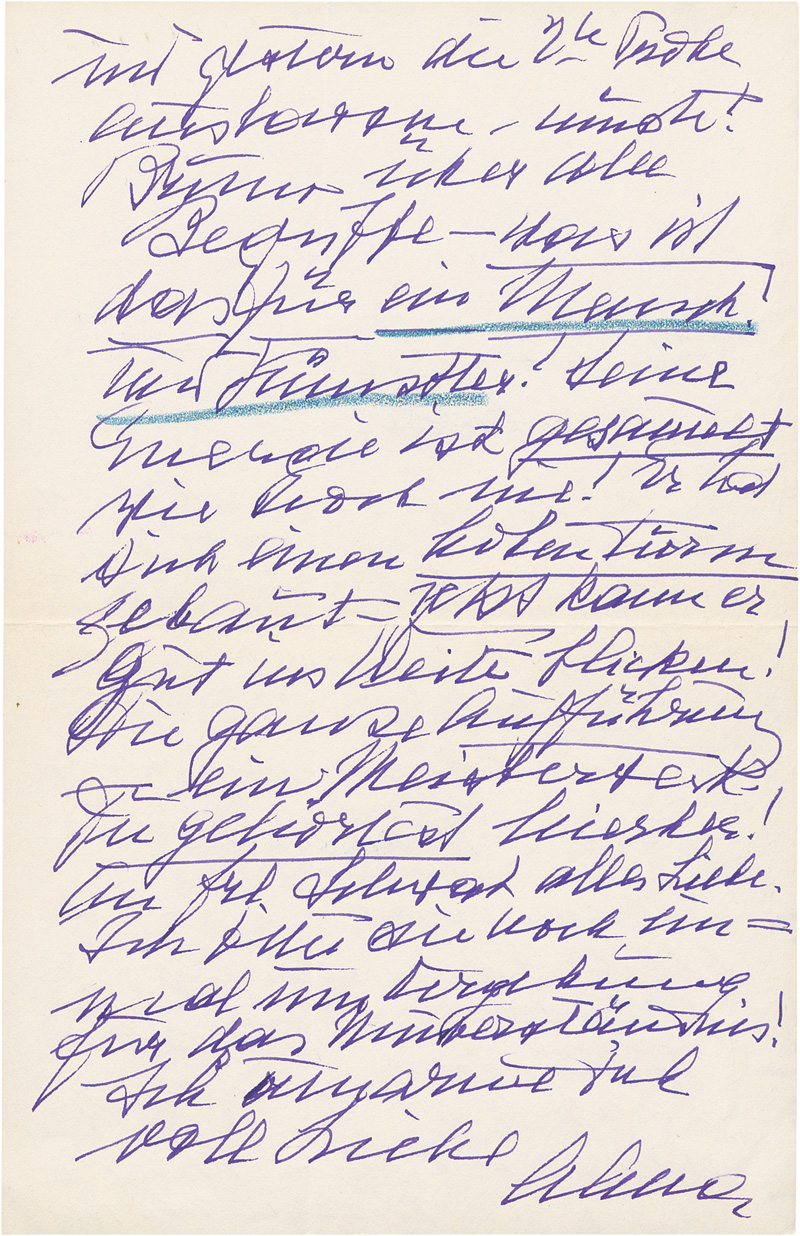 und gestern die 2te Probe
anhörte
Bruno über alle
Begriffe – was ist
das für ein Mensch!
und Künstler! Seine
Energie ist gesammelt
wie noch nie! Er hat
sich einen hohen Turm
gebaut – jetzt kann er
gut ins Weite blicken!
Die ganze Aufführung
ein Meisterwerk.
Du gehörtest hierher!
An Frl. alles Liebe.
Ich bitte Sie noch ein=
mal um Vergebung
für das Missverständnis!
Ich umarme Dich
voll Liebe
Alma